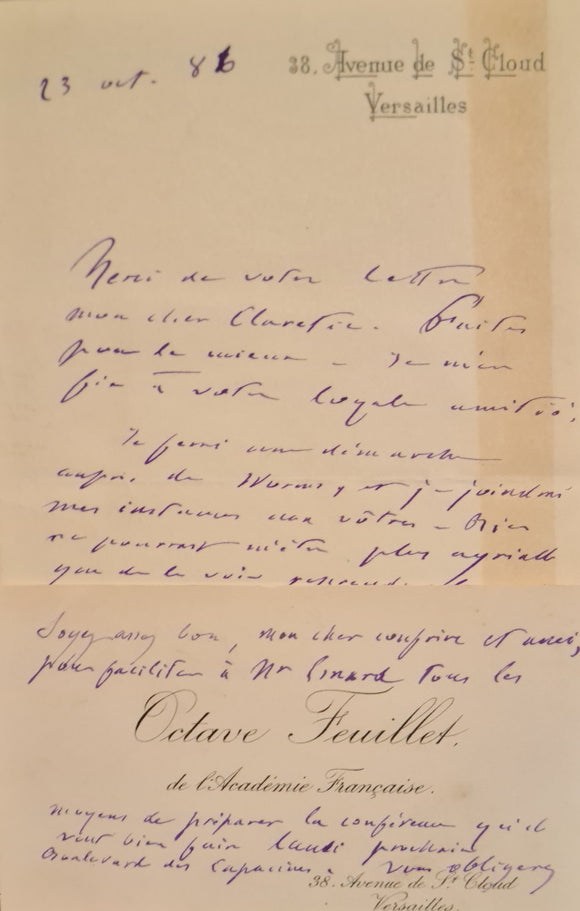 23 oct. 86
38, Avenue de St Cloud
Versailles
Merci de votre lettre
mon cher Claretie. Faites
pour le mieux - Je m'en
fie à votre loyale amitié.
Je ferai une démarche
auprès de Worms, et je joindrai
mes instances aux vôtres - Rien
ne pourrait m'être plus agréable
que de le voir reprendre
Soyez assez bon, mon cher confrère et ami,
pour faciliter à Mr tous les
Octave Feuillet.
de l'Académie Française.
moyens de préparer la conférence qu'il
veut bien faire lundi prochain
Boulevard des Capucines. vous obligerez
38. Avenue de St Cloud
Versailles.